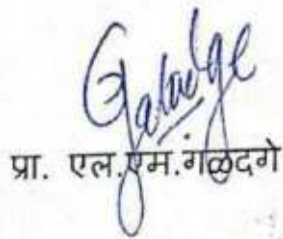 Galadge
प्रा. एल.एम.गळदगे